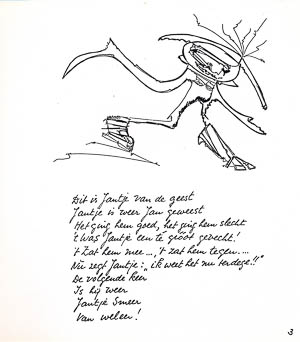 Dit is Jantje van de geest
Jantje is weer Jan geweest
Het ging hem goed, het ging hem slecht
't Was Jantje een te groot gevecht!
't Zat hem mee..., 't zat hem tegen....
Nu zegt Jantje: „ik weet het nu terdege!!"
De volgende keer
Is hij weer
Jantje Smeer
van weleer!
3